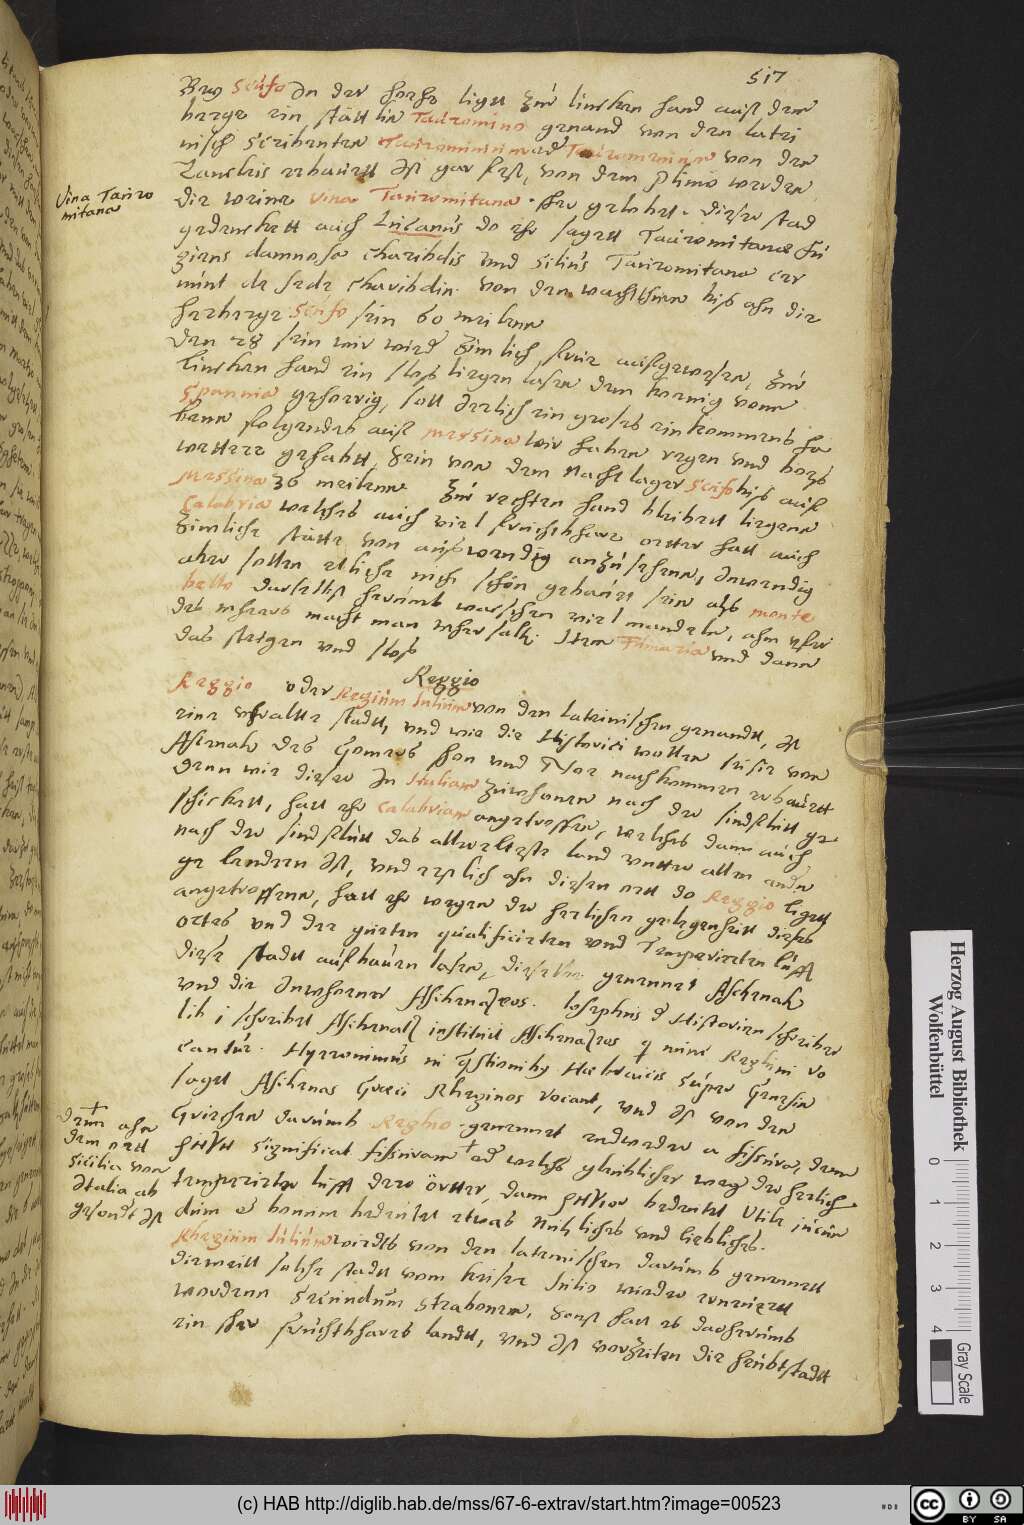 517
Bey Scuso An der hoehe ligtt Zur lincken hand auß dem
berge ein stättlin Tadromino genand von den latei
nisch scribenten Tauromininm od Tauromenium von den
Zancleis erbauwtt Ist gar fest, von dem Plinio werden
Vina Tauro
mitana
die weine vina Tauromitana sehr gelobet. dieser stad
gedencket auch Lucanus do ehr sagett Tauromitanae fu
giens damnosa charibdis und Silius Tauromitana cer
nunt de sede charibdin. von den wachtthurm biß ahn die
herberge Scuso sein 60 meilenn
den 28 sein wir wied zimlich frue aussgewesen, Zur
lincken hand ein schloß liegen lasen dem koenig vonn
Spannia gehoerig, soll Jerlich ein groses einkommens ha
benn folgendes auff Messina wir haben regen und boeß
wetter gehabtt, sein von dem Nachtlager Scuso biß auff
Messina 36 meilenn Zur rechten hand bleibett liegenn
Calabria welches auch viel fruchtbare oertter hatt auch
Zimliche stätte von außwendig anzusehenn, Inwendig
aber sollen etliche nich schön gebauet sein alß monte
bello daselbst herumb wachsen viel mandeln, ahm ufer
des mehres macht man mehrsaltz. Item Fiumaria und dann
das stetgen und schloß
Reggio
Reggio oder Regium Julium von den lateinischen genandtt, Ist
eine uhralte stadtt, und wie die Historici wollen soll sie von
Ascenah des Gomers son und Noe nachkommen erbauwtt
denn wie dieser In Italiam zuwohnen nach der sindflutt ge
schickett, hatt ehr Calabriam angetroffen, welches dann auch
nach der sindflutt das allereltiste land untter allen andn
ge lendern Ist, und erstlich ahn diesen ortt do Reggio ligett
angetroffenn, hatt ehr wegen der herlichen gelegenheitt dieses
ortes und der guten qualificirten und Temperirten lufft
diese stadtt aufbauen lasen, dieselbe genennet Aschenah
und die Inwohner Aschenazeos. Josephus d Historien schreiber
lib i schreibet Aschenatz instituit Aschenazeos q nunc Reghini vo
cantur Hyeronimus in qstionibq Haebraicis super Genesin
saget Aschenas Graeci Rheginos vocant, und Ist von den
Griechen darumb Reghio genennet endweder a fissura, denn
+
denn ahn
dem ortt
Sicilia von
Italia ab
gesondt Ist
ῥήγω significat fissuram + od welchs glaublicher weg der herlich
temperirten lufft derr örtter, dann ῥήγιον bedeutet Utile iucun
dum et bonum bedeutet etwas nutzliches und liebliches.
Rhegium Julium wirdts von den lateinischen darumb genennett
dieweill solche stadtt vom keiser Julio wieder ernewertt
wordenn secundum Strabonem, sonst hatt es daherumb
ein sehr fruchtbares landtt, und Ist vorzeiten die heubtstadtt
Herzog August Bibliothek
Wolfenbüttel
0
1
2
3
4
Gray Scale
(c) HAB http://diglib.hab.de/mss/67-6-extrav/start.htm?image=00523
CC
BY SA